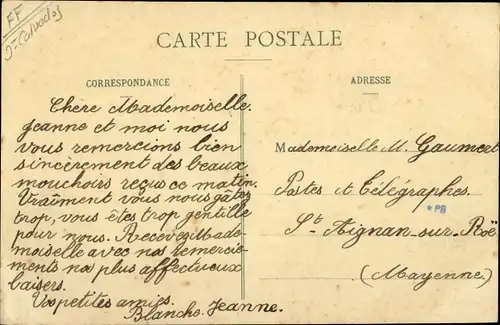 FF
CARTE POSTALE
CORRESPONDANCE
Chère Mademoiselle.
Jeanne et moi nous
vous remercions bien
sincèrement des beaux
mouchoirs reçus ce matin.
Vraiment vous nous gâtez
trop, vous êtes trop gentille
pour nous. Recevez Made
moiselle avec nos remercie-
ments nos plus affectueux
baisers.
Vos petites amies.
Blanche. Jeanne.
ADRESSE
Mademoiselle M. Gaumert
Postes et Télégraphes.
*PB
St Aignan-sur-Roë
(Mayenne)